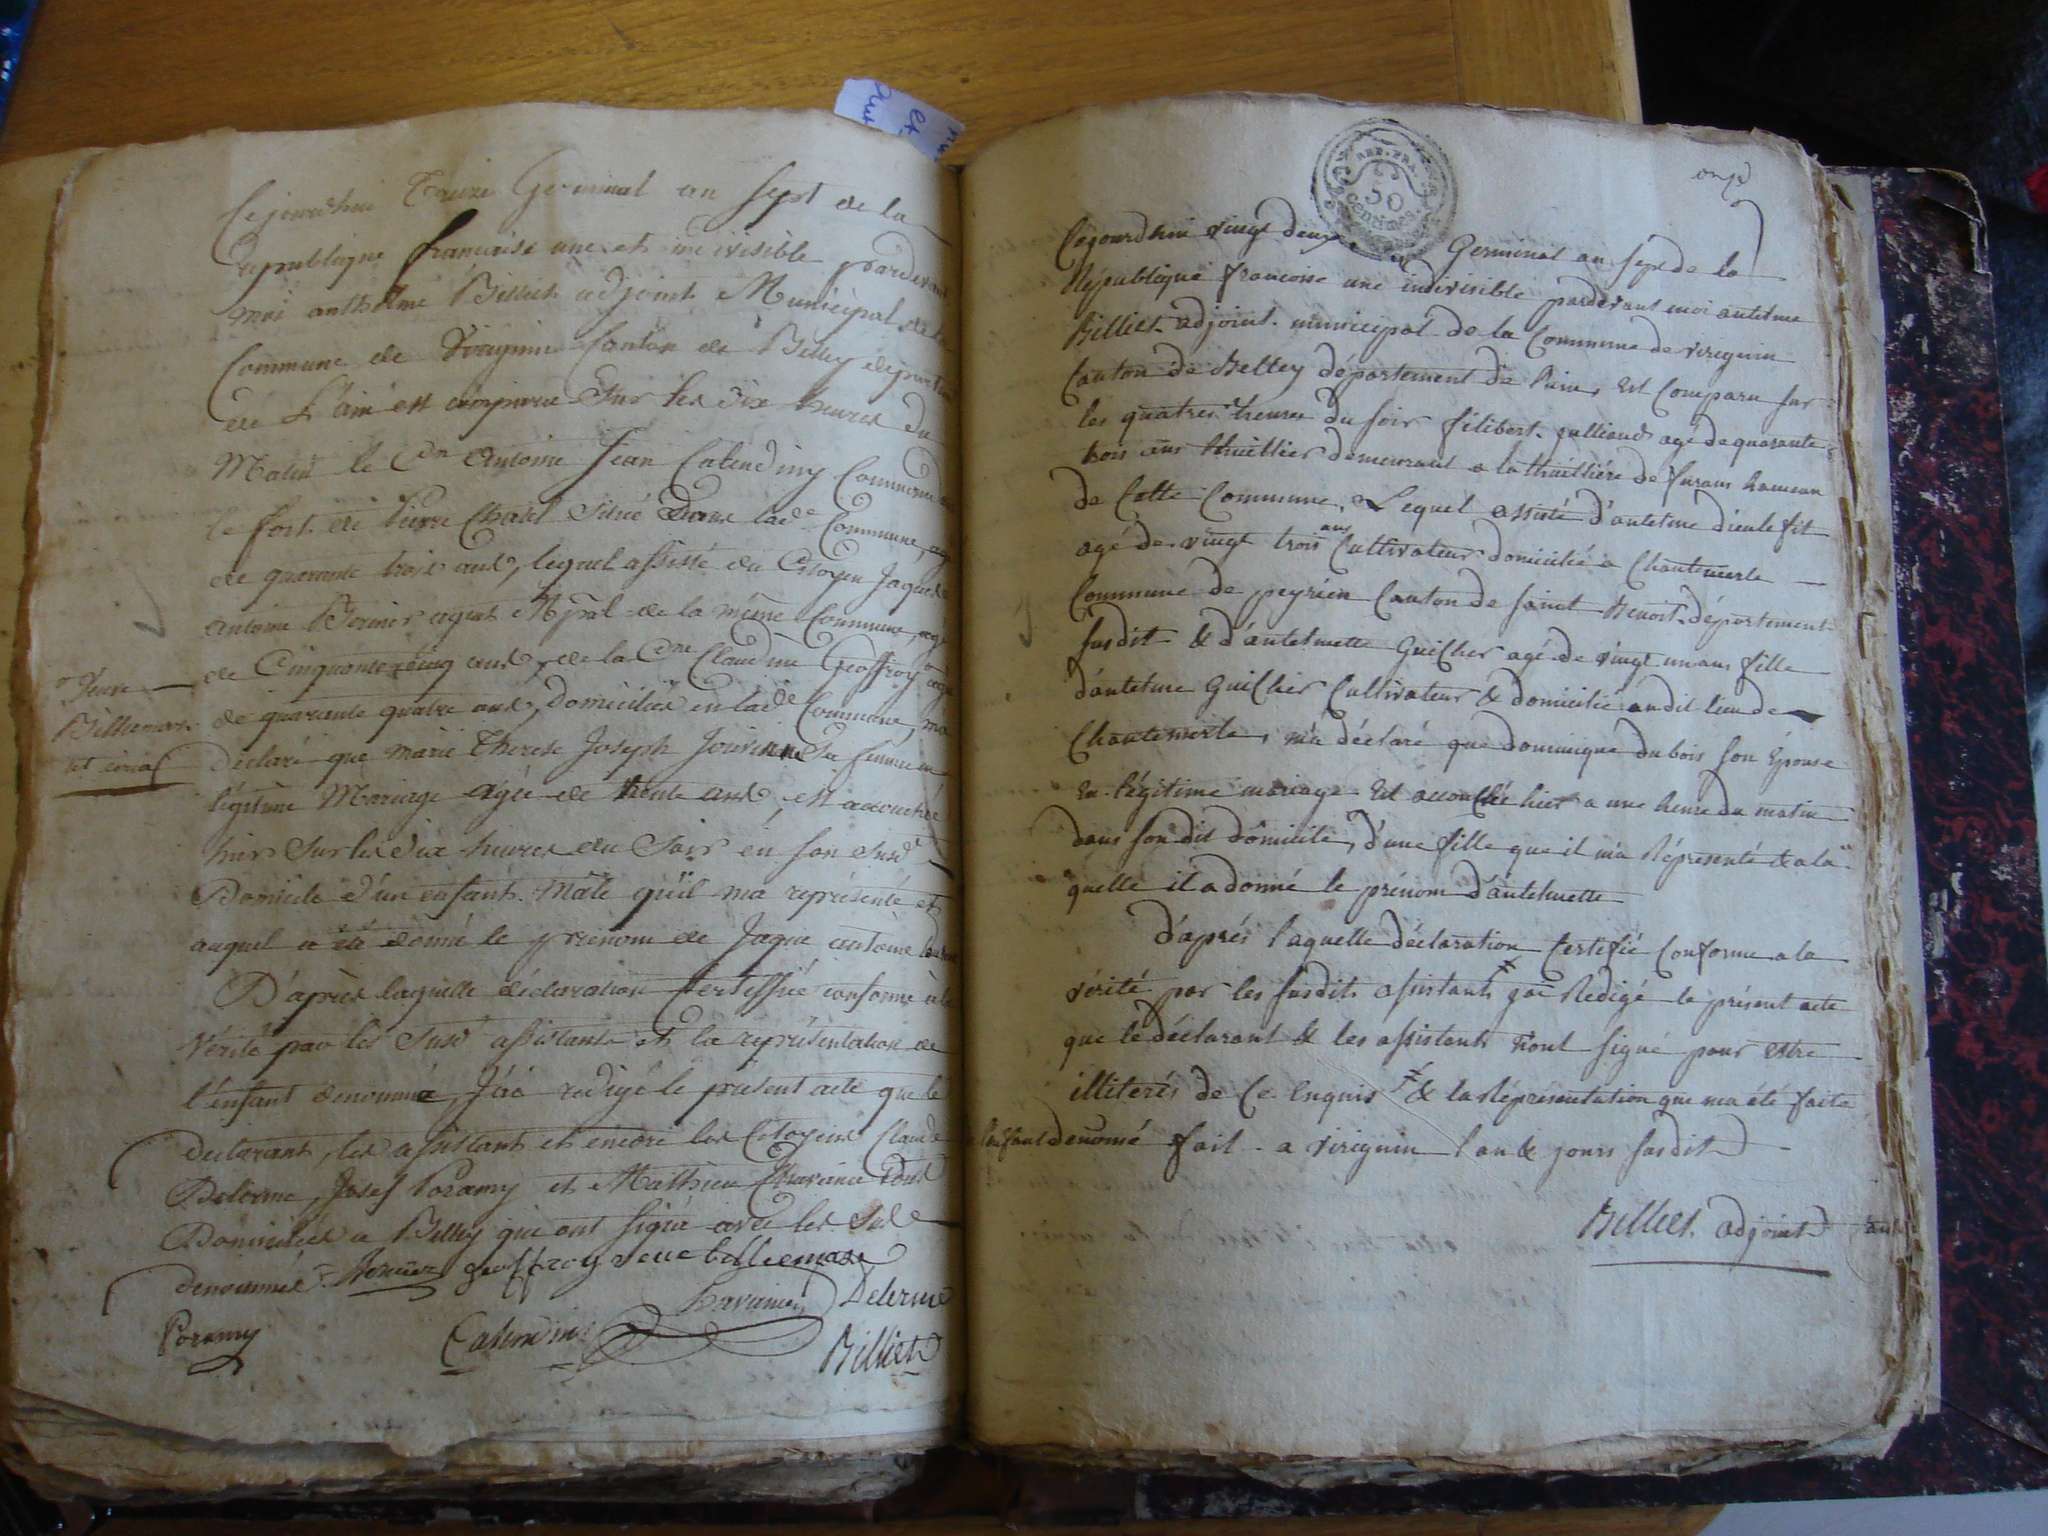 Cejourdhui Treize Germinal an Sept de la
republique francaise une et indivisible pardevant
moi anthelme Billiet adjoint Municipal de la
Commune de Virignin Canton de Belley departement
de L'ain est comparu Sur les dix heures du
Matin le Cen Antoine Jean
le fort de Pierre Chatel Situé Dans lade Commune, agé
de quarante trois ans, lequel assisté du Citoyen Jaques
antoine Bernier agent Mpal de la même Commune, agé
de Cinquante cinq ans, de la Cne Claudine Geoffroy agée
de quarante quatre ans, Domiciliés en lade Commune, ma
Declaré que marie Therese Joseph Sa femme en
légitime Mariage agée de trente ans, est accouchée
hier Sur les dix heures du Soir en son susd
Domicile d'un enfant Mâle qu'il ma représenté et
auquel a été donné le prenom de Jaque antoine
D'après laquelle déclaration Certiffiée conforme à la
Vérité par les Susd assistants et la représentation de
l'enfant denommé, J'ai redigé le présent acte que le
declarant, les assistant et encore les Citoyens Claude
Delerme, Josef Poramy et Mathieu tous
Domiciliés a Belley qui ont signé avec les Sus
denommés. Bernier geoffroy veuve billiemase
Delerme
Poramy
Billiet
veuve
Billiemase
onze
REP. FRA.
50
CENTIMES
Cejourdhui vingt deux Germinal an sept de la
République francoise une indivisible pardevant moi antelme
Billiet adjoint municipal de la Commune de virignin
Canton de Belley département de l'ain, Est Comparu sur
les quatres heures du soir filibert julliand agé de quarante
trois ans thuillier demeurant a la thuilliere de furans hameau
de Cette Commune, Lequel assisté d'antelme dieulefit
agé de vingt trois ans Cultivateur domicilié a Chantemerle
Commune de peyrieu Canton de sainct Benoit département
susdit & d'antelmette Guilher agé de vingt un ans fille
d'antelme Guilher Cultivateur & domicilié audit lieu de
Chantemerle, m'a déclaré que dominique dubois son Épouse
en légitime mariage Est accouchée hier a une heure du matin
dans son dit domicile, d'une fille que il m'a Répresenté & a la
quelle il a donné le prénom d'antelmette
D'aprés laquelle déclaration Certifié Conforme a la
vérité par les susdits assistants j'ai Redigé le présent acte
que le déclarant & les assistants n'ont signé pour estre
illiterés de Ce Enquis & la Réprésentation que ma été faite
de l'enfant denomé fait a virignin l'an & jours susdit
Billiet adjoint